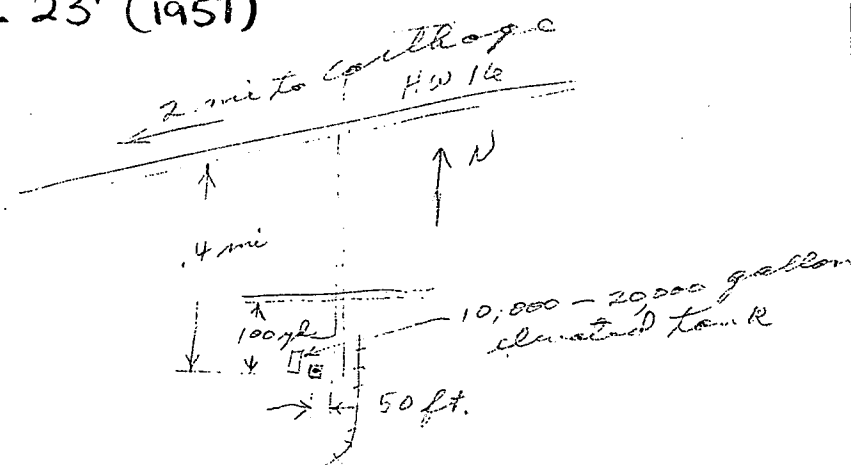 - 23' (1951)
2 mi to Carthage
HW 16
N
.4 mi
10,000 - 20,000 gallon
elevated tank
100 yds
50 ft.